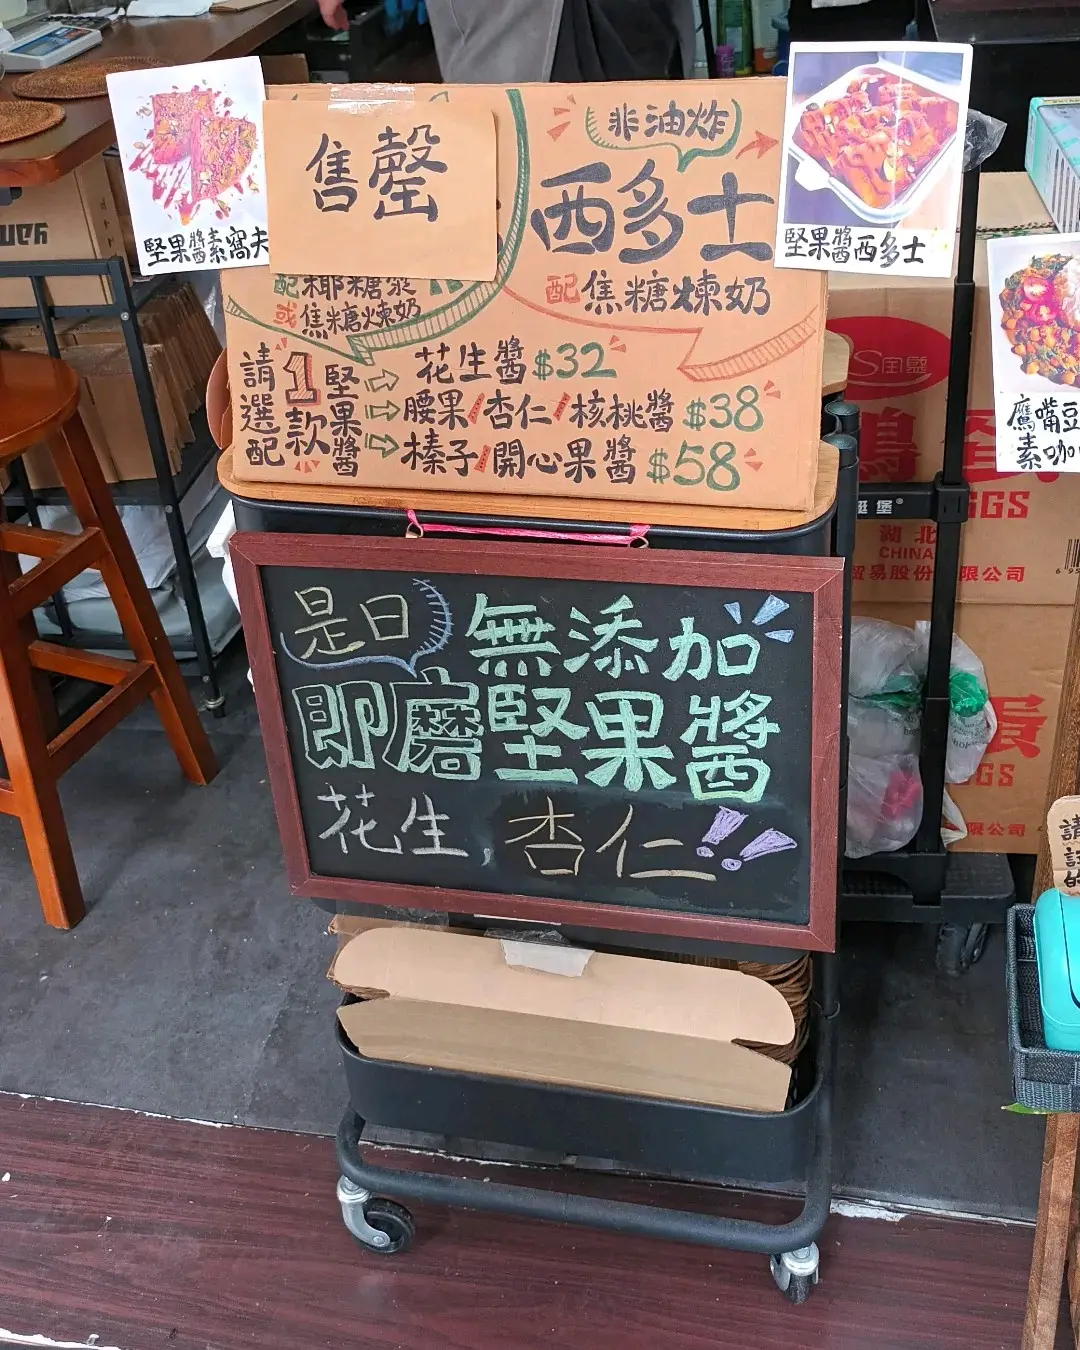 堅果醬素窩夫
售罄
配椰糖漿
或焦糖煉奶
非油炸
西多士
配焦糖煉奶
堅果醬西多士
請選配
1款
堅果醬
花生醬$32
腰果/杏仁/核桃醬$38
榛子/開心果醬$58
是日
無添加
即磨堅果醬
花生,杏仁!!
鷹嘴豆
素咖
湖北
CHINA
貿易股份
限公司
GGS
限公司